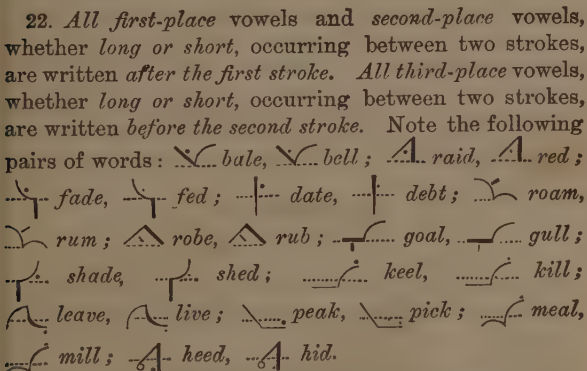 22. All first-place vowels and second-place vowels,
whether long or short, occurring between two strokes,
are written after the first stroke. All third-place vowels,
whether long or short, occurring between two strokes,
are written before the second stroke. Note the following
pairs of words : bale, bell ; raid, red ;
fade, fed ; date, debt ; roam,
rum ; robe, rub ; goal, gull ;
shade, shed ; keel, kill ;
leave, live ; peak, pick ; meal,
mill ; heed, hid.